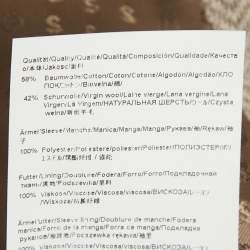 Qualität/Quality/Qualité/Qualità/Composición/Qualidade/Качеств
о/本体/Jakość/面料
58% Baumwolle/Cotton/Coton/Cotone/Algodón/Algodão/ХЛО
ПОК/コットン/Bawełna/棉
42% Schurwolle/Virgin wool/Laine vierge/Lana vergine/Lana
Virgen/Lã Virgem/НАТУРАЛЬНАЯ ШЕРСТЬ/ウール/Czysta
wełna/新羊毛
Ärmel/Sleeve/Manche/Manica/Manga/Manga/Рукава/袖/Rękaw/袖
子
100% Polyester/Polyester/poliestere/Poliester/ПОЛИЭСТЕР/ポリ
エステル/聚酯纤维
Futter/Lining/Doublure/Fodera/Forro/Forro/Подкладочная
ткань/裏地/Podszewka/里料
100% Viskose/Viscose/Viscose/Viscosa/Viscosa/ВИСКОЗА/レーヨン
/Viskoza/
Ärmelfutter/Sleeve lining/Doublure de manche/Fodera
manica/Forro de la manga/Forro da manga/Подкладка
рукава/袖裏地/Podszewka rękawa/袖里
100% Viskose/Viscose/Viscose/Viscosa/Viscosa/ВИСКОЗА/レーヨン